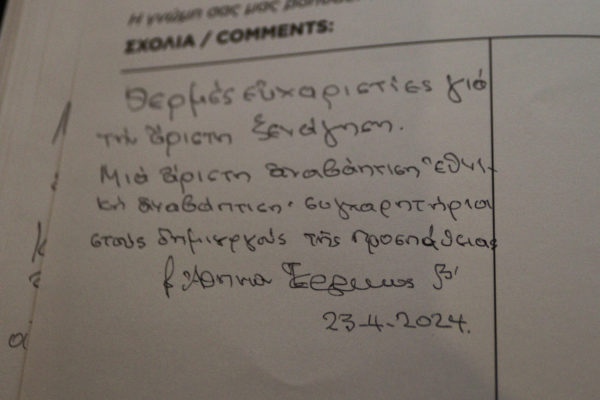 Η γνώμη σας μας
ΣΧΟΛΙΑ / COMMENTS:
Θερμές εὐχαριστίες γιά
τήν ἄριστη ξενάγηση.
Μιά ἄριστη ἀναβάπτιση "ἐθνι-
κή ἀναβάπτιση. συγχαρητήρια
στούς δημιουργούς τῆς προσπάθειας
23-4-2024.